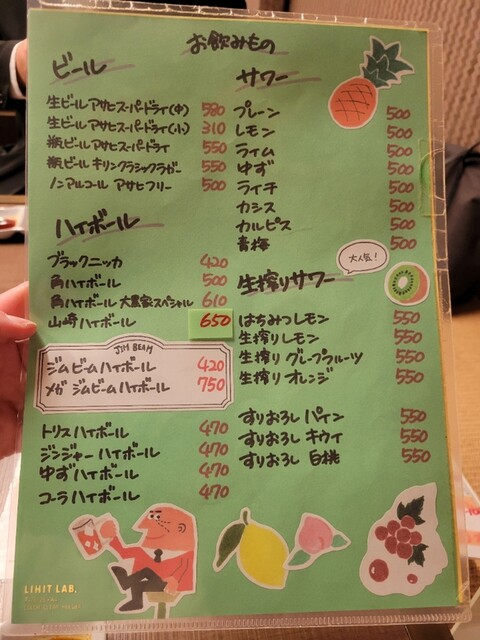 お飲みもの
ビール
生ビール アサヒスーパードライ(中) 580
生ビール アサヒスーパードライ(小) 310
瓶ビール アサヒスーパードライ 550
瓶ビール キリンクラシックラガー 550
ノンアルコール アサヒフリー 500
ハイボール
ブラックニッカ 420
角ハイボール 500
角ハイボール 大農家スペシャル 610
山崎ハイボール 650
JIM BEAM
ジムビームハイボール 420
メガ ジムビームハイボール 750
トリスハイボール 470
ジンジャーハイボール 470
ゆずハイボール 470
コーラハイボール 470
サワー
プレーン 500
レモン 500
ライム 500
ゆず 500
ライチ 500
カシス 500
カルピス 500
青梅 500
大人気!
生搾りサワー
はちみつレモン 550
生搾りレモン 550
生搾り グレープフルーツ 550
生搾り オレンジ 550
すりおろし パイン 550
すりおろし キウイ 550
すりおろし 白桃 550
LIHIT LAB.